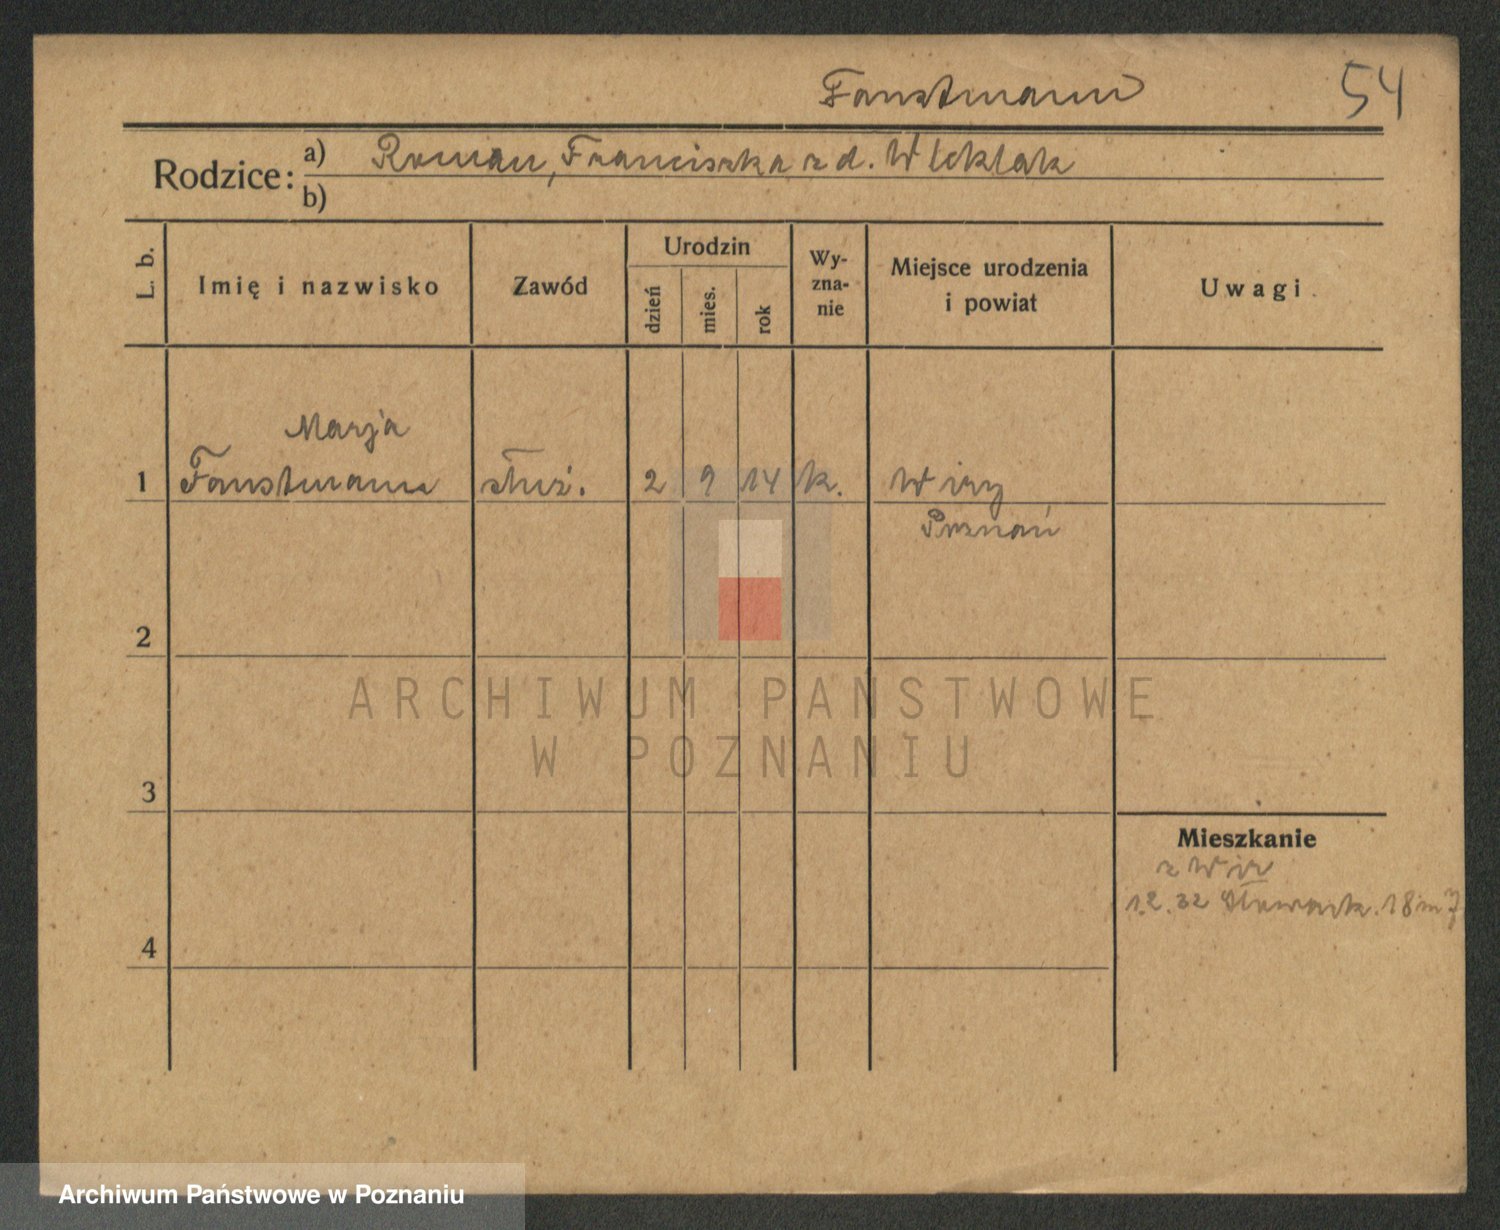 Faustmann 54
Rodzice: a) Roman, Franciszka z d. Wleklak
b)
L. b. Imię i nazwisko Zawód Urodzin dzień mies. rok Wy-zna-nie Miejsce urodzenia i powiat Uwagi
Marja
1 Faustmann służ. 2 9 14 k. Wiry
Poznań
2
ARCHIWUM PAŃSTWOWE
W POZNANIU
3
Mieszkanie
z Wir
1.2.32 18 m 7
4
Archiwum Państwowe w Poznaniu